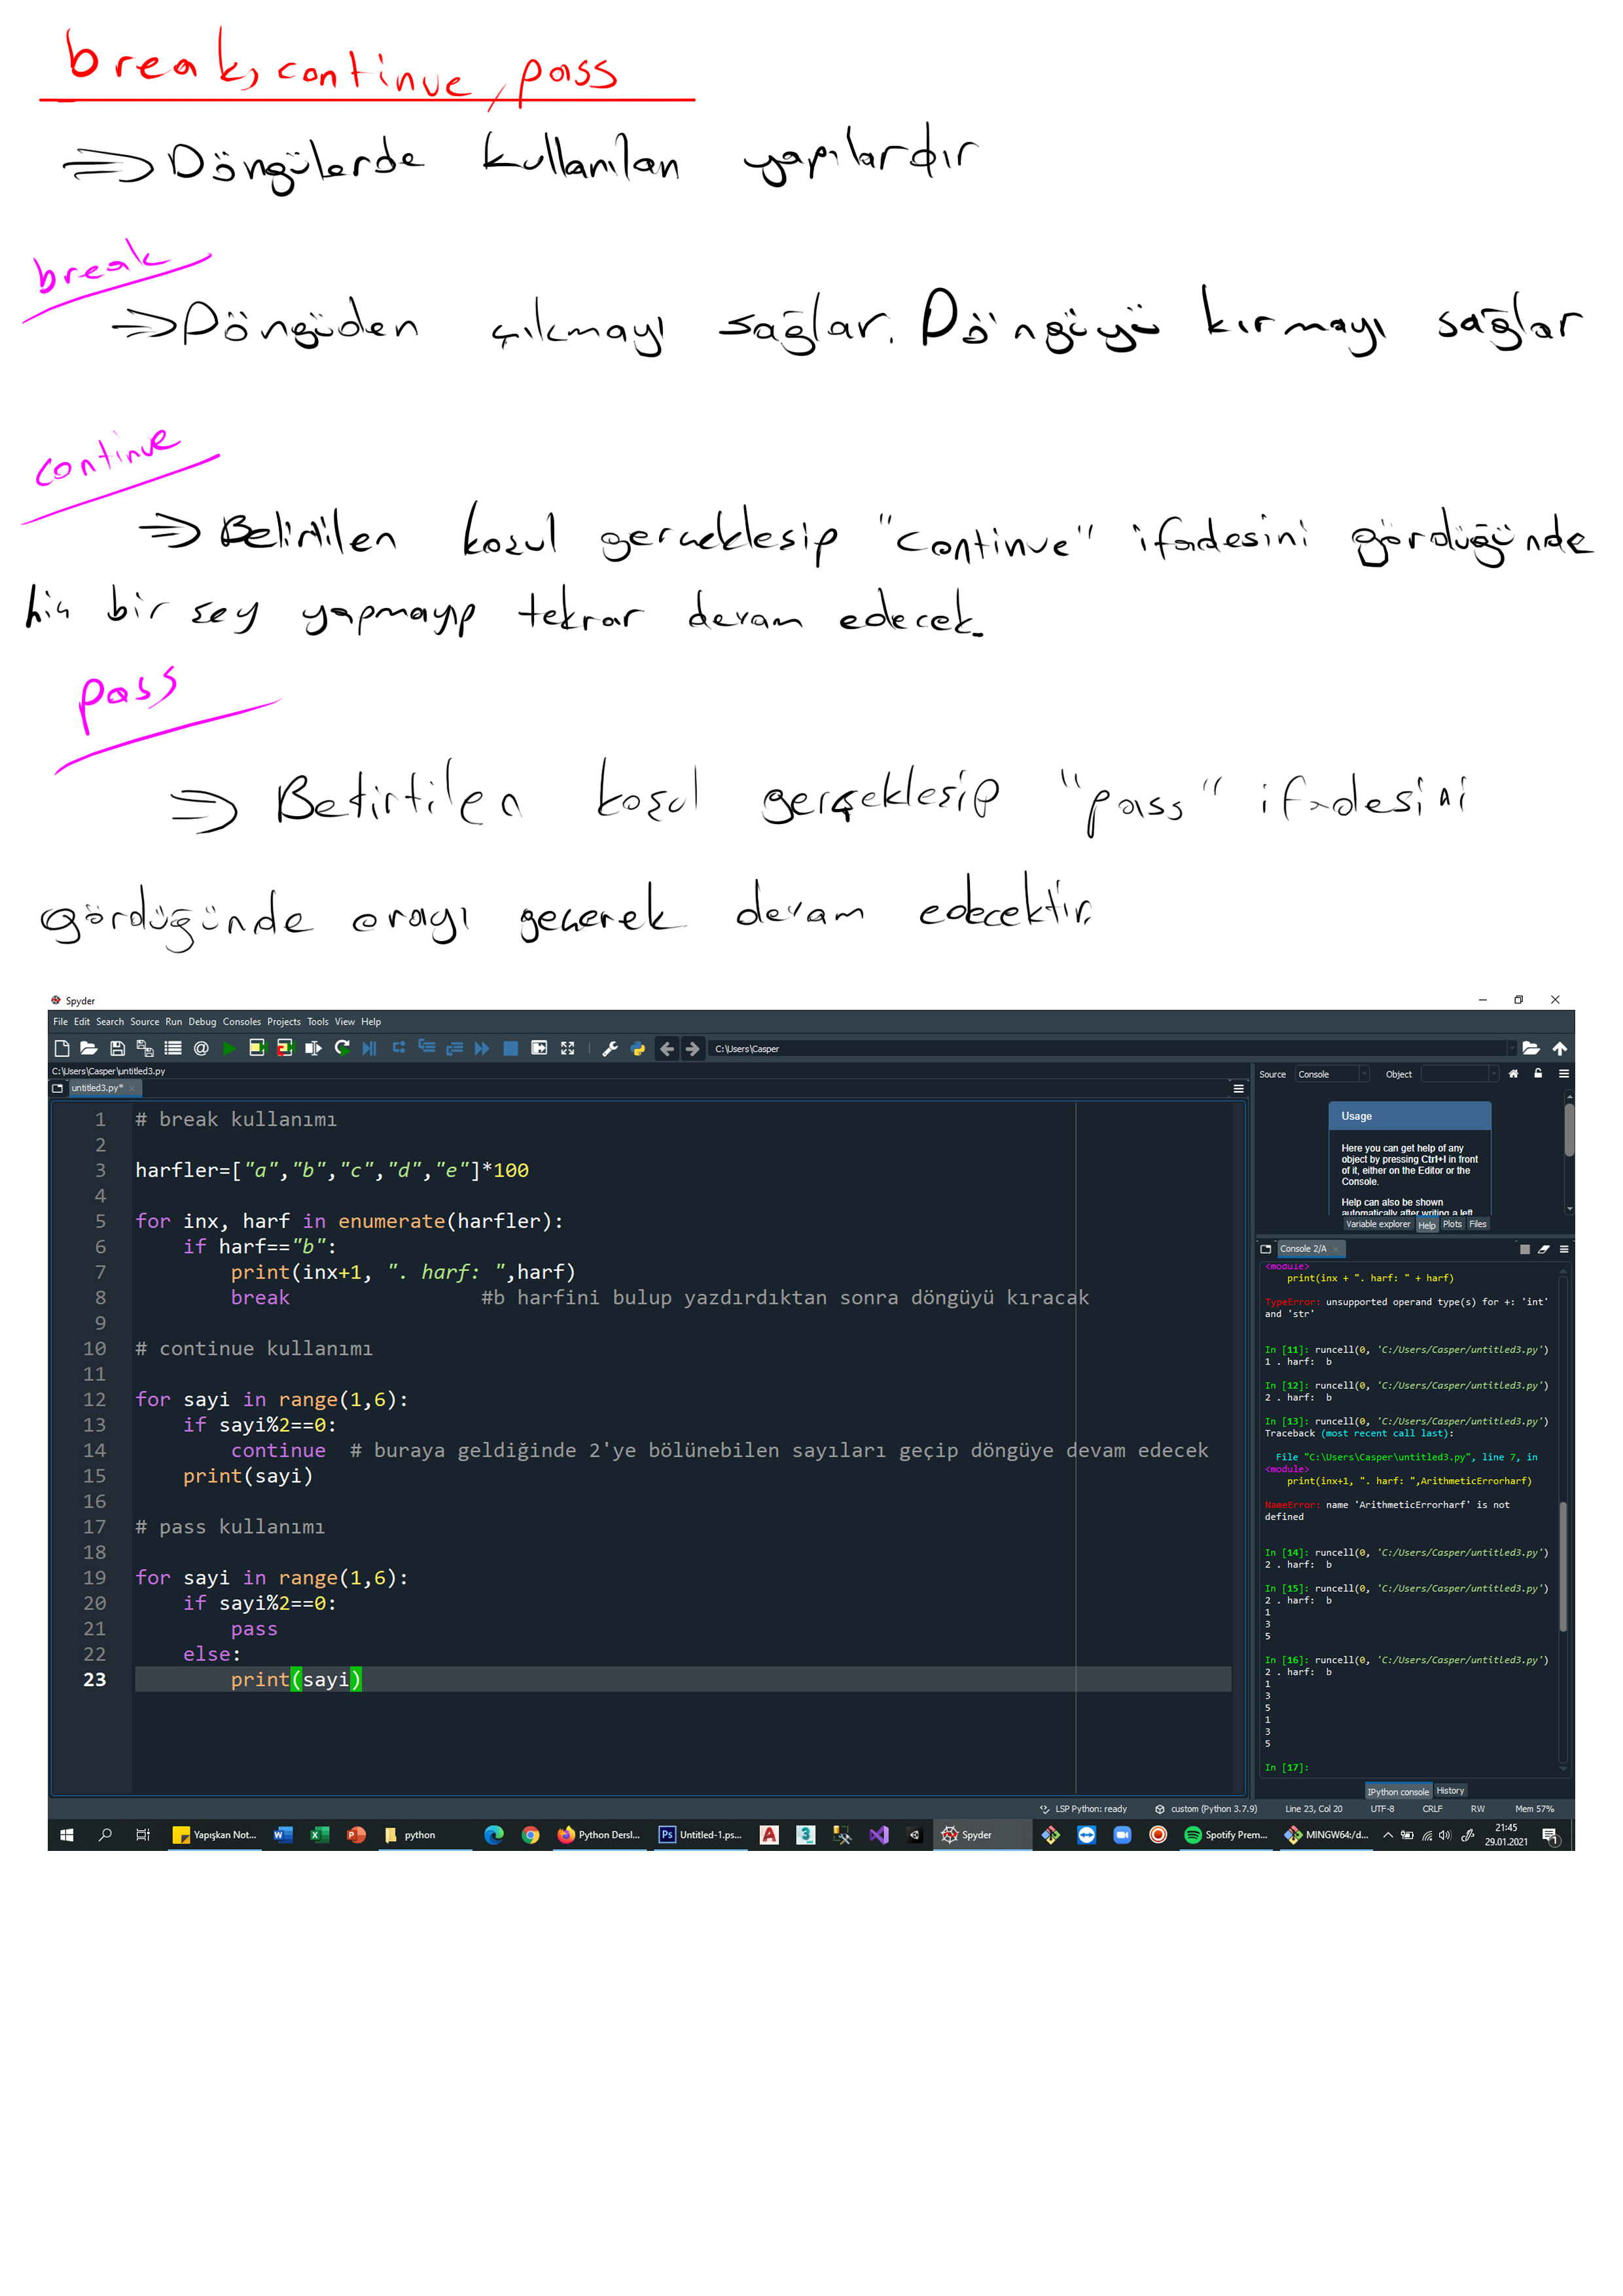 break, continue, pass
⇒ Döngülerde kullanılan yapılardır
break
⇒ Döngüden çıkmayı sağlar. Döngüyü kırmayı sağlar
continue
⇒ Belirtilen koşul gerçeklesip "continue" ifadesini gördüğünde
hiç bir sey yapmayıp tekrar devam edecek.
pass
⇒ Belirtilen koşul gerçeklesip "pass" ifadesini
gördüğünde orayı geçerek devam edecektir.
Spyder
File Edit Search Source Run Debug Consoles Projects Tools View Help
C:\Users\Casper
C:\Users\Casper\untitled3.py
untitled3.py*
1 # break kullanımı
2
3 harfler=["a","b","c","d","e"]*100
4
5 for inx, harf in enumerate(harfler):
6     if harf=="b":
7         print(inx+1, ". harf: ",harf)
8         break                #b harfini bulup yazdırdıktan sonra döngüyü kıracak
9
10 # continue kullanımı
11
12 for sayi in range(1,6):
13     if sayi%2==0:
14         continue  # buraya geldiğinde 2'ye bölünebilen sayıları geçip döngüye devam edecek
15     print(sayi)
16
17 # pass kullanımı
18
19 for sayi in range(1,6):
20     if sayi%2==0:
21         pass
22     else:
23         print(sayi)
Source Console Object
Usage
Here you can get help of any
object by pressing Ctrl+I in front
of it, either on the Editor or the
Console.
Help can also be shown
automatically after writing a left
Variable explorer Help Plots Files
Console 2/A
<module>
    print(inx + ". harf: " + harf)
TypeError: unsupported operand type(s) for +: 'int'
and 'str'
In [11]: runcell(0, 'C:/Users/Casper/untitled3.py')
1 . harf:  b
In [12]: runcell(0, 'C:/Users/Casper/untitled3.py')
2 . harf:  b
In [13]: runcell(0, 'C:/Users/Casper/untitled3.py')
Traceback (most recent call last):
  File "C:\Users\Casper\untitled3.py", line 7, in
<module>
    print(inx+1, ". harf: ",ArithmeticErrorharf)
NameError: name 'ArithmeticErrorharf' is not
defined
In [14]: runcell(0, 'C:/Users/Casper/untitled3.py')
2 . harf:  b
In [15]: runcell(0, 'C:/Users/Casper/untitled3.py')
2 . harf:  b
1
3
5
In [16]: runcell(0, 'C:/Users/Casper/untitled3.py')
2 . harf:  b
1
3
5
1
3
5
In [17]:
IPython console History
LSP Python: ready custom (Python 3.7.9) Line 23, Col 20 UTF-8 CRLF RW Mem 57%
Yapışkan Not... python Python Dersl... Untitled-1.ps... Spyder Spotify Prem... MINGW64:/d... 21:45
29.01.2021